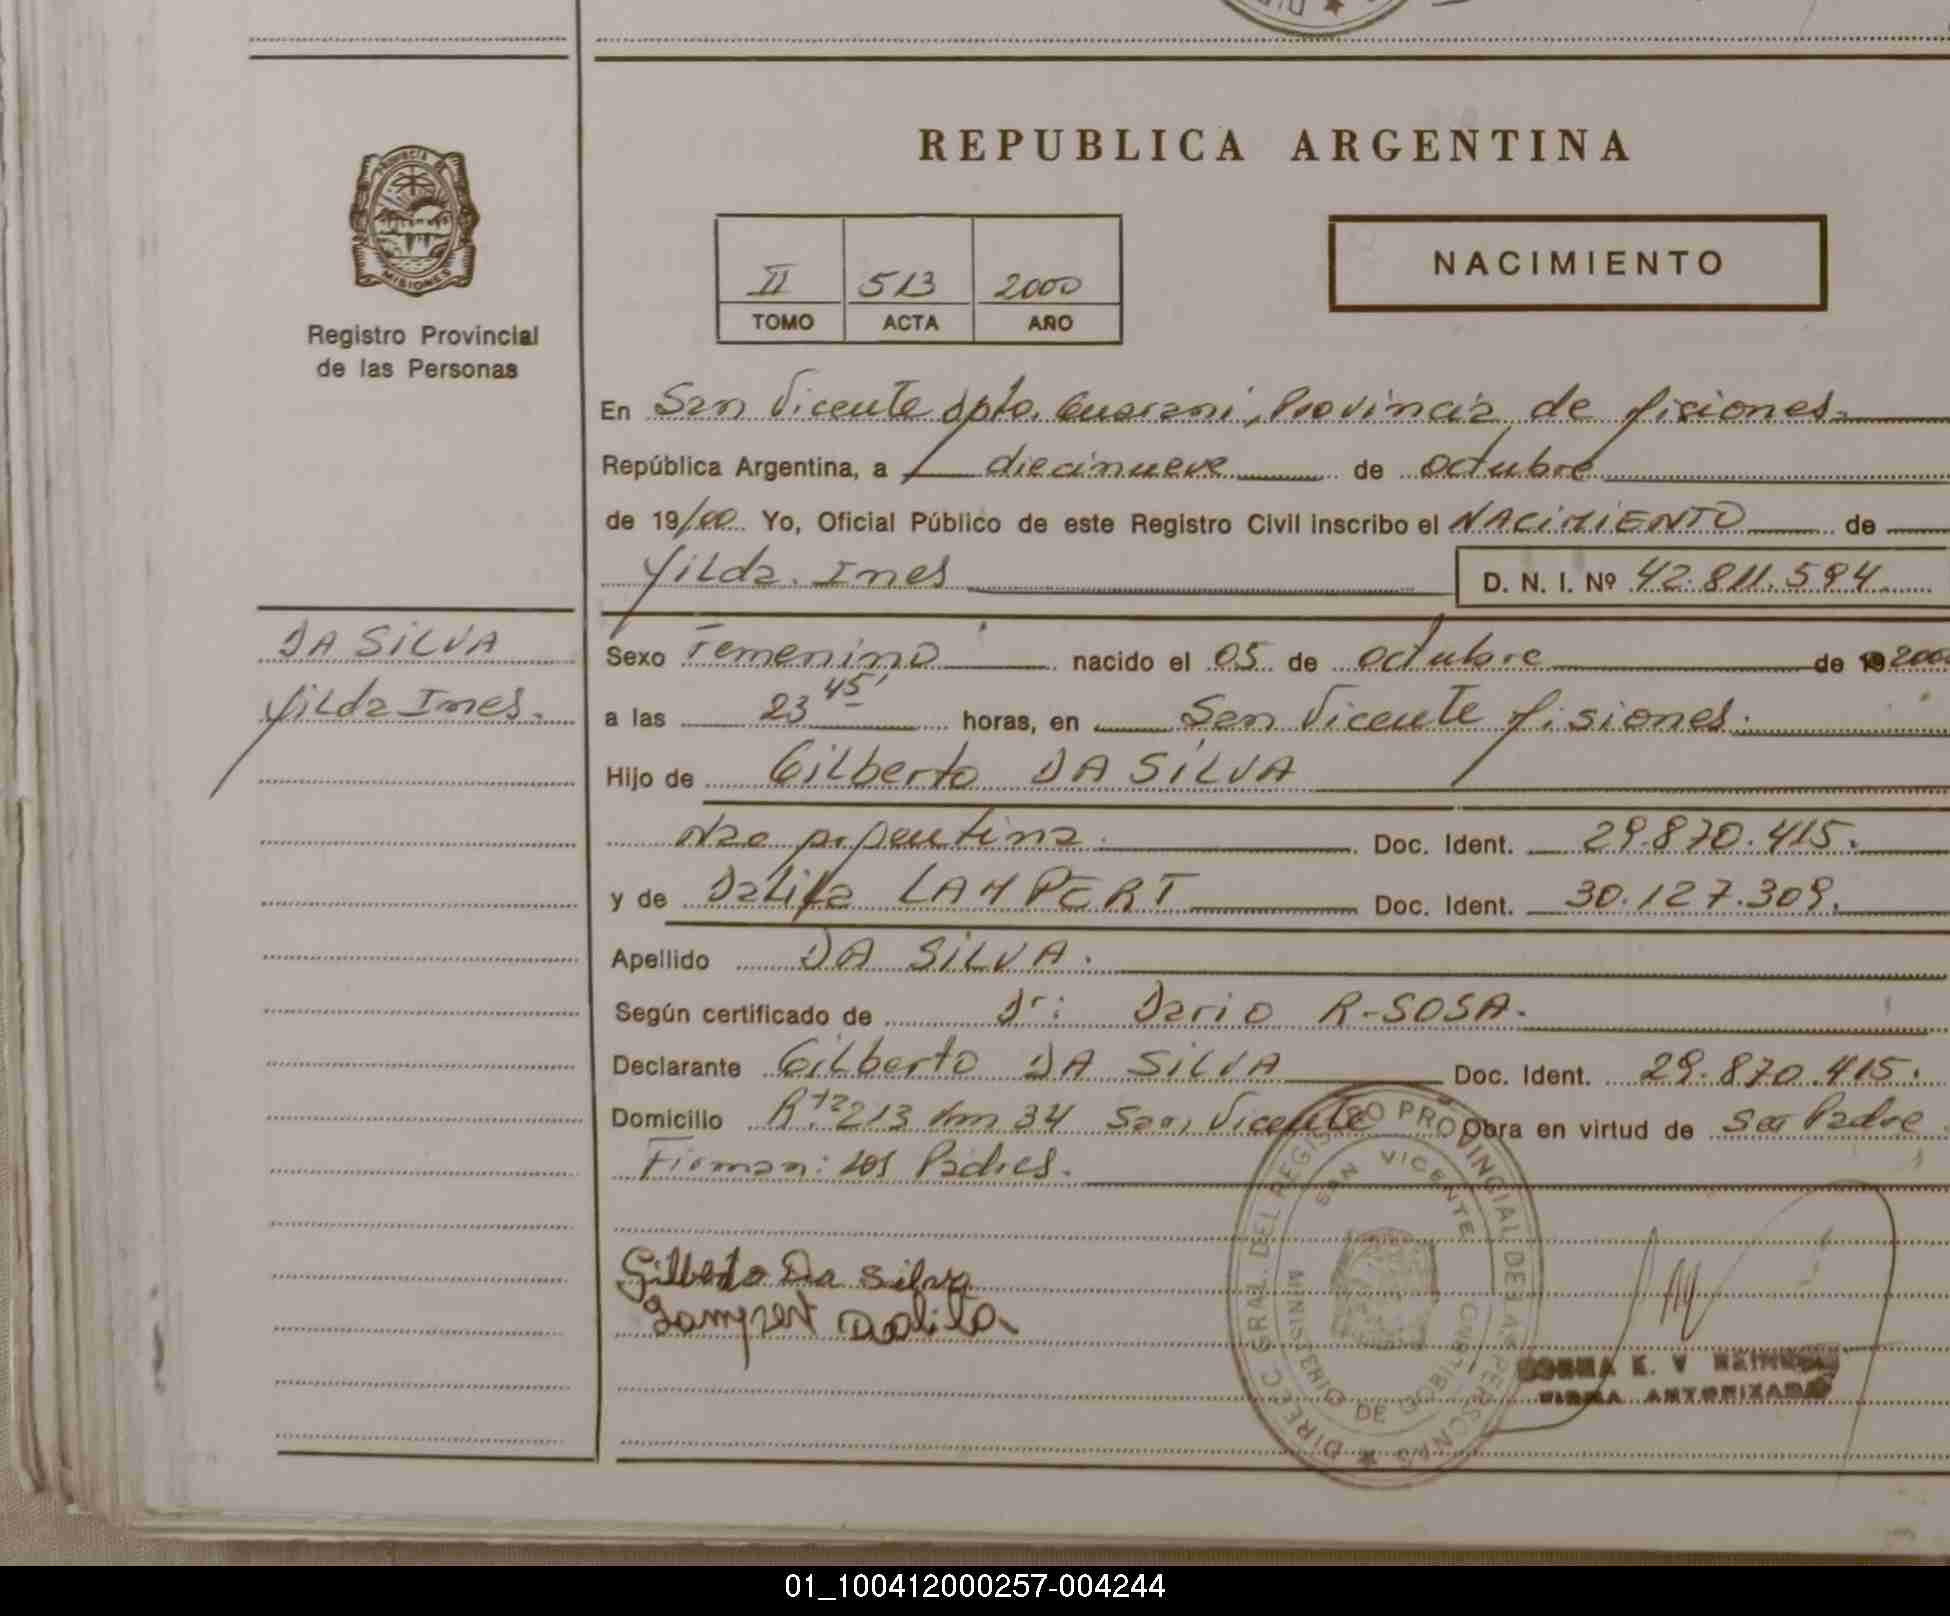 REPUBLICA ARGENTINA
PROVINCIA DE
MISIONES
Registro Provincial
de las Personas
II 513 2000
TOMO ACTA AÑO
NACIMIENTO
En San Vicente dpto. Guarani, Provincia de Misiones.
República Argentina, a diecinueve de octubre
de 19/00 Yo, Oficial Público de este Registro Civil inscribo el NACIMIENTO de
Yilda Ines D. N. I. Nº 42.811.594
DA SILVA
Yilda Ines.
Sexo Femenino nacido el 05 de octubre de 19 2000
a las 23 45' horas, en San Vicente Misiones.
Hijo de Gilberto DA SILVA
Nac Argentina. Doc. Ident. 29.870.415.
y de Dalila LAMPERT Doc. Ident. 30.127.309.
Apellido DA SILVA.
Según certificado de Dr: Dario R-SOSA.
Declarante Gilberto DA SILVA Doc. Ident. 29.870.415.
Domicilio R.ta 213 Km 34 San Vicente Obra en virtud de ser Padre
Firman: los Padres.
Gilberto Da Silva
Lampert Dalila
DIREC. GRAL. DEL REGISTRO PROVINCIAL DE LAS PERSONAS
SAN VICENTE
MINISTERIO DE GOBIERNO
E. V
FIRMA AUTORIZADA
01_100412000257-004244